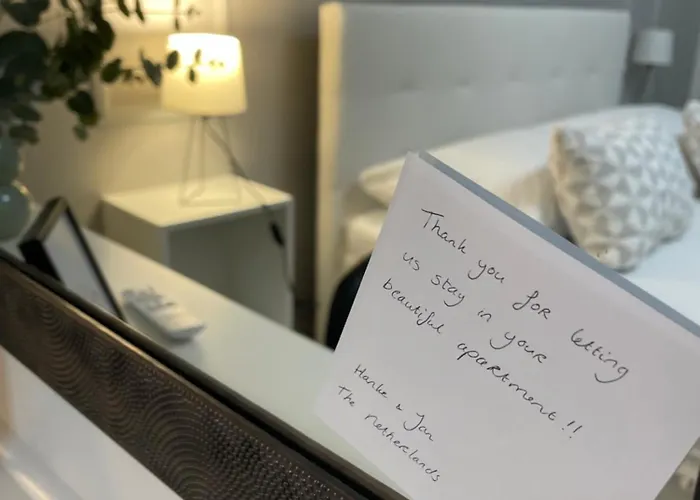 Thank you for letting
us stay in your
beautiful apartment!!
Hanke & Jan
The Netherlands